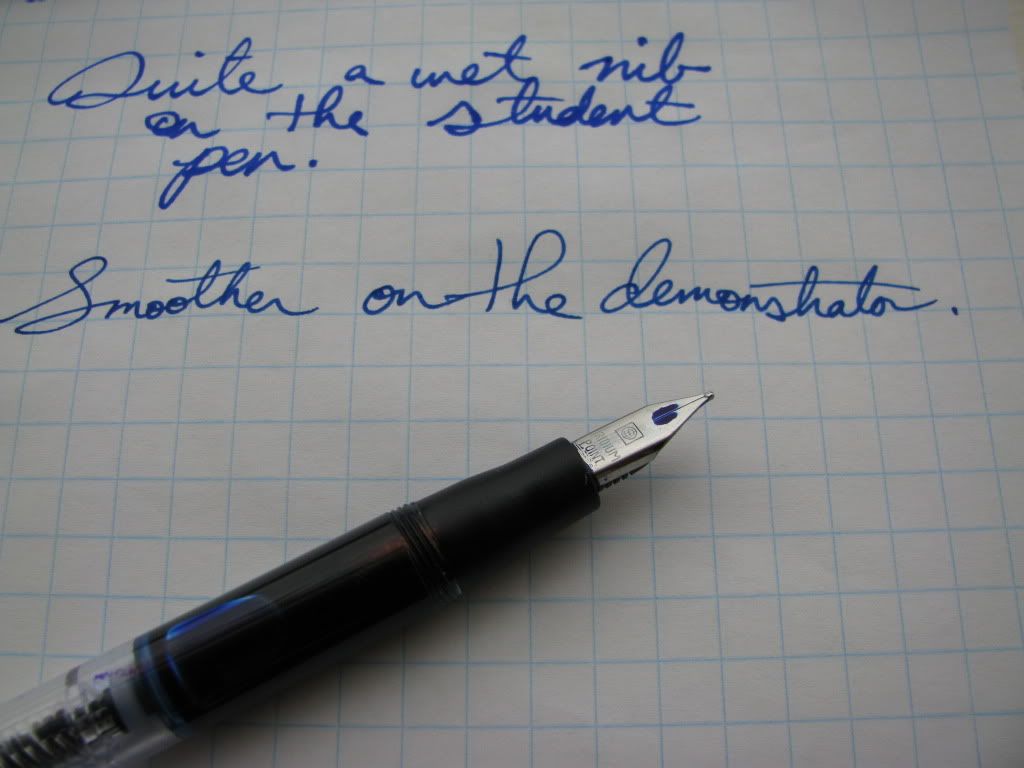 Quite a wet nib
on the student
pen.
Smoother on the demonstrator.
IRIDIUM
POINT